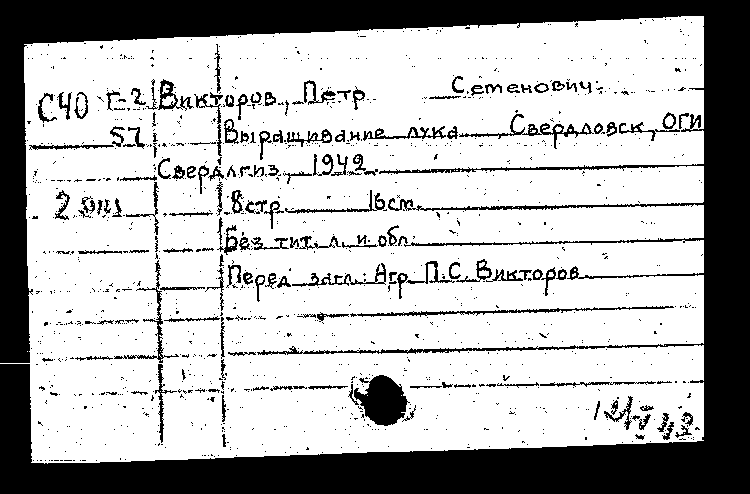 С40 Г-2 Викторов, Петр Семенович.
57 Выращивание лука Свердловск, ОГИ
Свердлгиз, 1942.
2 экз 8стр. 16см.
Без тит. л. и обл.
Перед загл.: Агр. П.С. Викторов